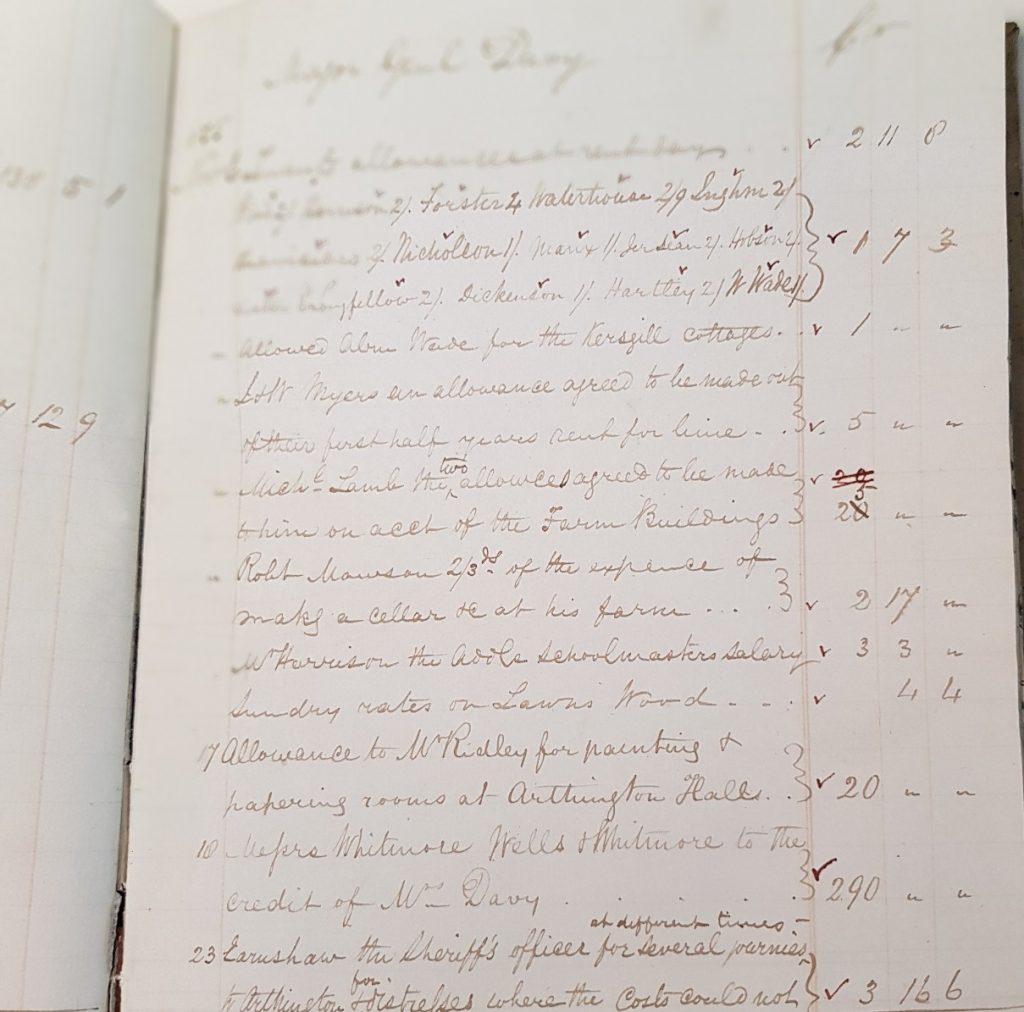 Major Genl Davy
Cr
130 5 1
Tenants allowances at rent days . . . 2 11 8
2/. Forster 4 Waterhouse 2/9 Inghm 2/
2/. Nicholson 1/. 2/. Hobson 2/. 1 7 3
Longfellow 2/. Dickenson 1/. Hartley 2/ W Wade 1/.
" Allowed Abm Wade for the Kersgill cottages . . 1 " "
7 12 9
" J & W Myers an allowance agreed to be made out
of their first half years rent for lime - . 5 " "
" Michl. Lamb the two allowces agreed to be made
to him on acct of the Farm Buildings 25 " "
" Robt Mawson 2/3ds of the expence of
makg a cellar &c at his farm ... . 2 17 "
Mr Harrison the Adole Schoolmasters salary 3 3 "
Sundry rates on Lawns Wood - - . 4 4
17 Allowance to Mr Ridley for painting &
papering rooms at Arthington Halls . . 20 " "
18 Messrs Whitmore Wells & Whitmore to the
credit of Mrs Davy . . 290 " "
at different times -
23 Earnshaw the Sheriff's officer for several journies
to Arthington for distresses where the Costs could not 3 16 6